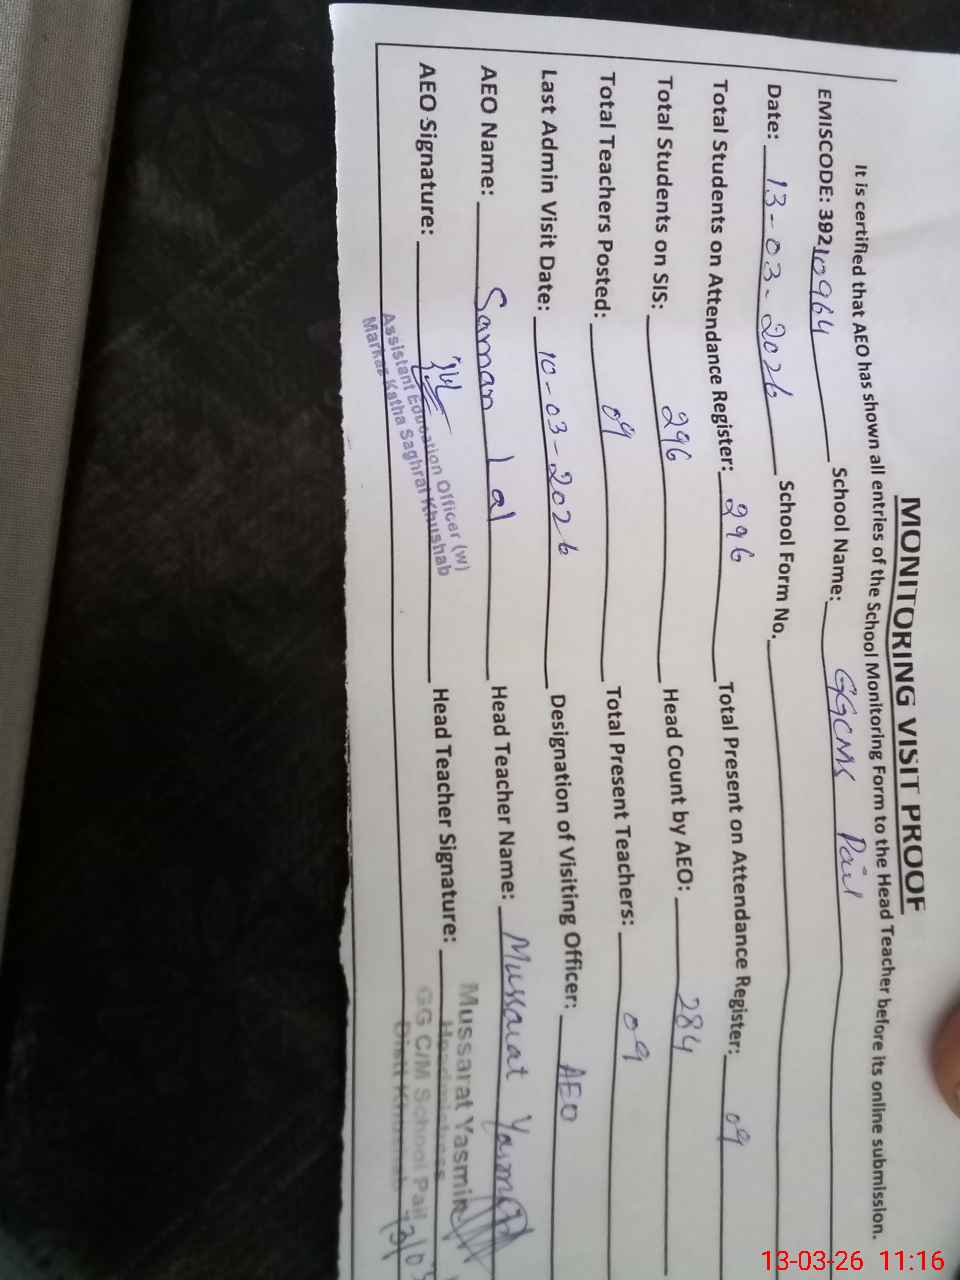 MONITORING VISIT PROOF
It is certified that AEO has shown all entries of the School Monitoring Form to the Head Teacher before its online submission.
EMISCODE: 39210964 School Name: GGCMS Pail
Date: 13-03-2026 School Form No.
Total Students on Attendance Register: 296 Total Present on Attendance Register: 09
Total Students on SIS: 296 Head Count by AEO: 284
Total Teachers Posted: 09 Total Present Teachers: 09
Last Admin Visit Date: 10-03-2026 Designation of Visiting Officer: AEO
AEO Name: Saman Lal Head Teacher Name: Mussarat Yasmin
AEO Signature: Head Teacher Signature:
Assistant Education Officer (w)
Markaz Katha Saghral Khushab
Mussarat Yasmin
Headmistress
GG C/M School Pail
Distt Khushab
13/03
13-03-26 11:16